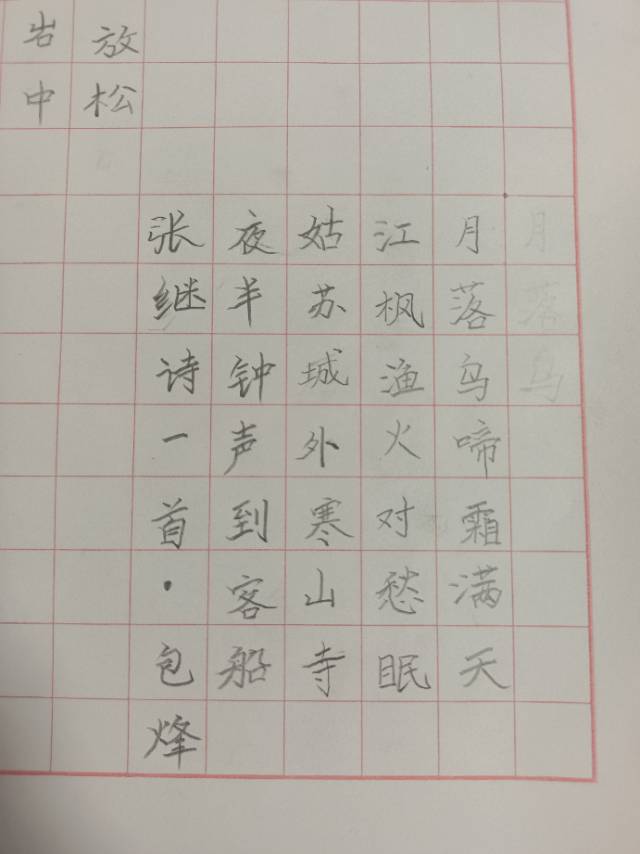 月落乌
月落乌啼霜满天
江枫渔火对愁眠
姑苏城外寒山寺
夜半钟声到客船
张继诗一首·包烽
放松
岩中